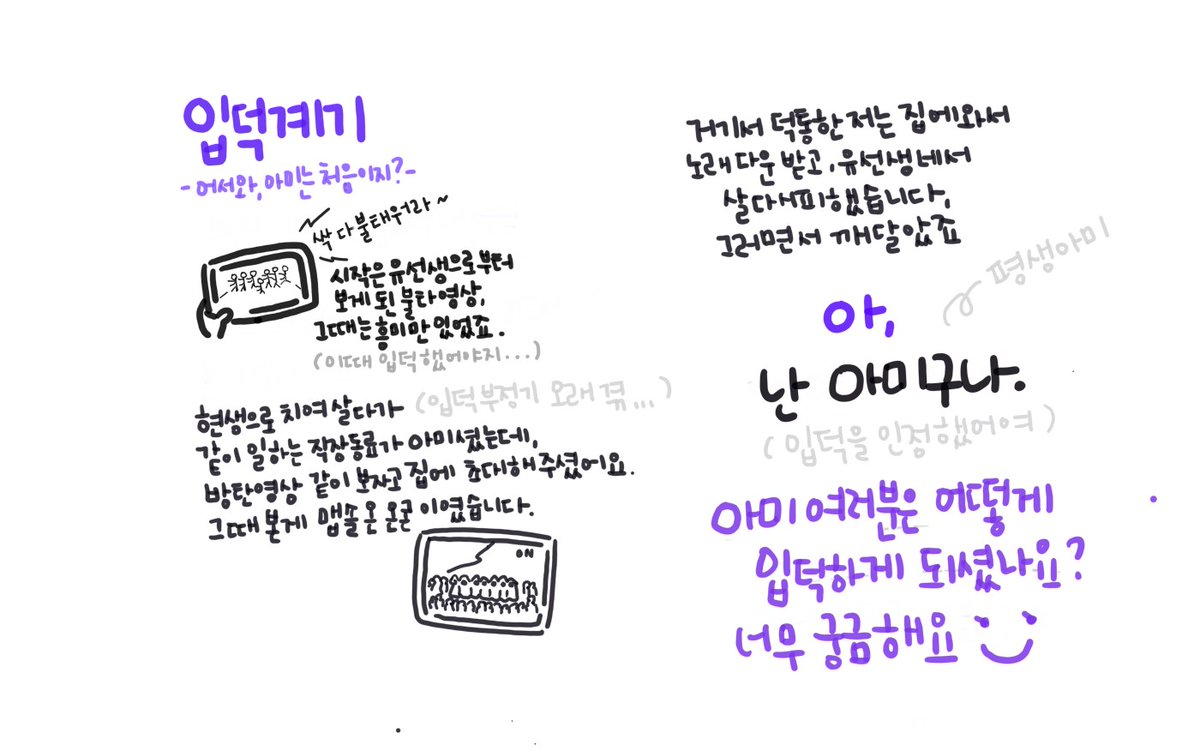 입덕계기
-어서와, 아미는 처음이지?-
싹 다 불태워라~
시작은 유선생으로부터
보게 된 불타영상,
그때는 흥미만 있었죠.
(이때 입덕했어야지...)
현생으로 치여 살다가 (입덕부정기 오래 겪...)
같이 일하는 직장동료가 아미셨는데,
방탄영상 같이 보자고 집에 초대해주셨어요.
그때 본게 맵솔온 온콘이였습니다.
ON
거기서 덕통한 저는 집에와서
노래 다운 받고, 유선생네서
살다시피했습니다,
그러면서 깨달았죠
평생아미
아,
난 아미구나.
(입덕을 인정했어여)
아미 여러분은 어떻게
입덕하게 되셨나요?
너무 궁금해요